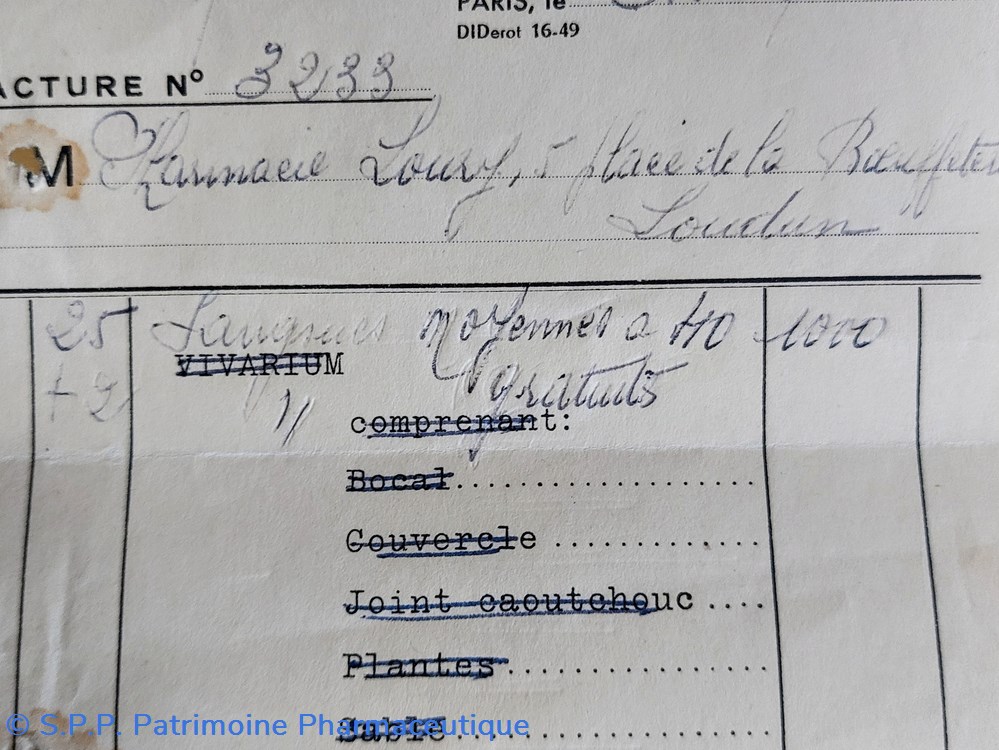 PARIS, le
DIDerot 16-49
ACTURE N° 3233
M Pharmacie Loury, 5 place de la Bœuffeterie
Loudun
25 Sangsues moyennes a 40 1000
VIVARIUM
+ 2 " gratuits
comprenant:
Bocal
Couvercle
Joint caoutchouc
Plantes
Sable
© S.P.P. Patrimoine Pharmaceutique